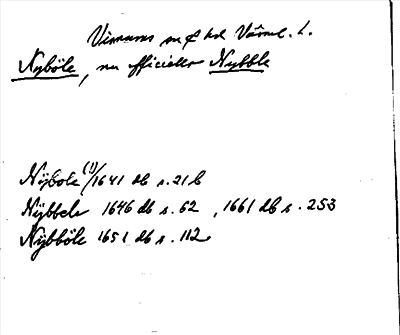 Visnums sn ₵ hd Värml. L.
Nyböle, nu officiellt Nybble
Nÿbole (1)/1641 db s. 21 b
Nÿbbele 1646 db s. 62, 1661 db s. 253
Nÿbböle 1651 db s. 112